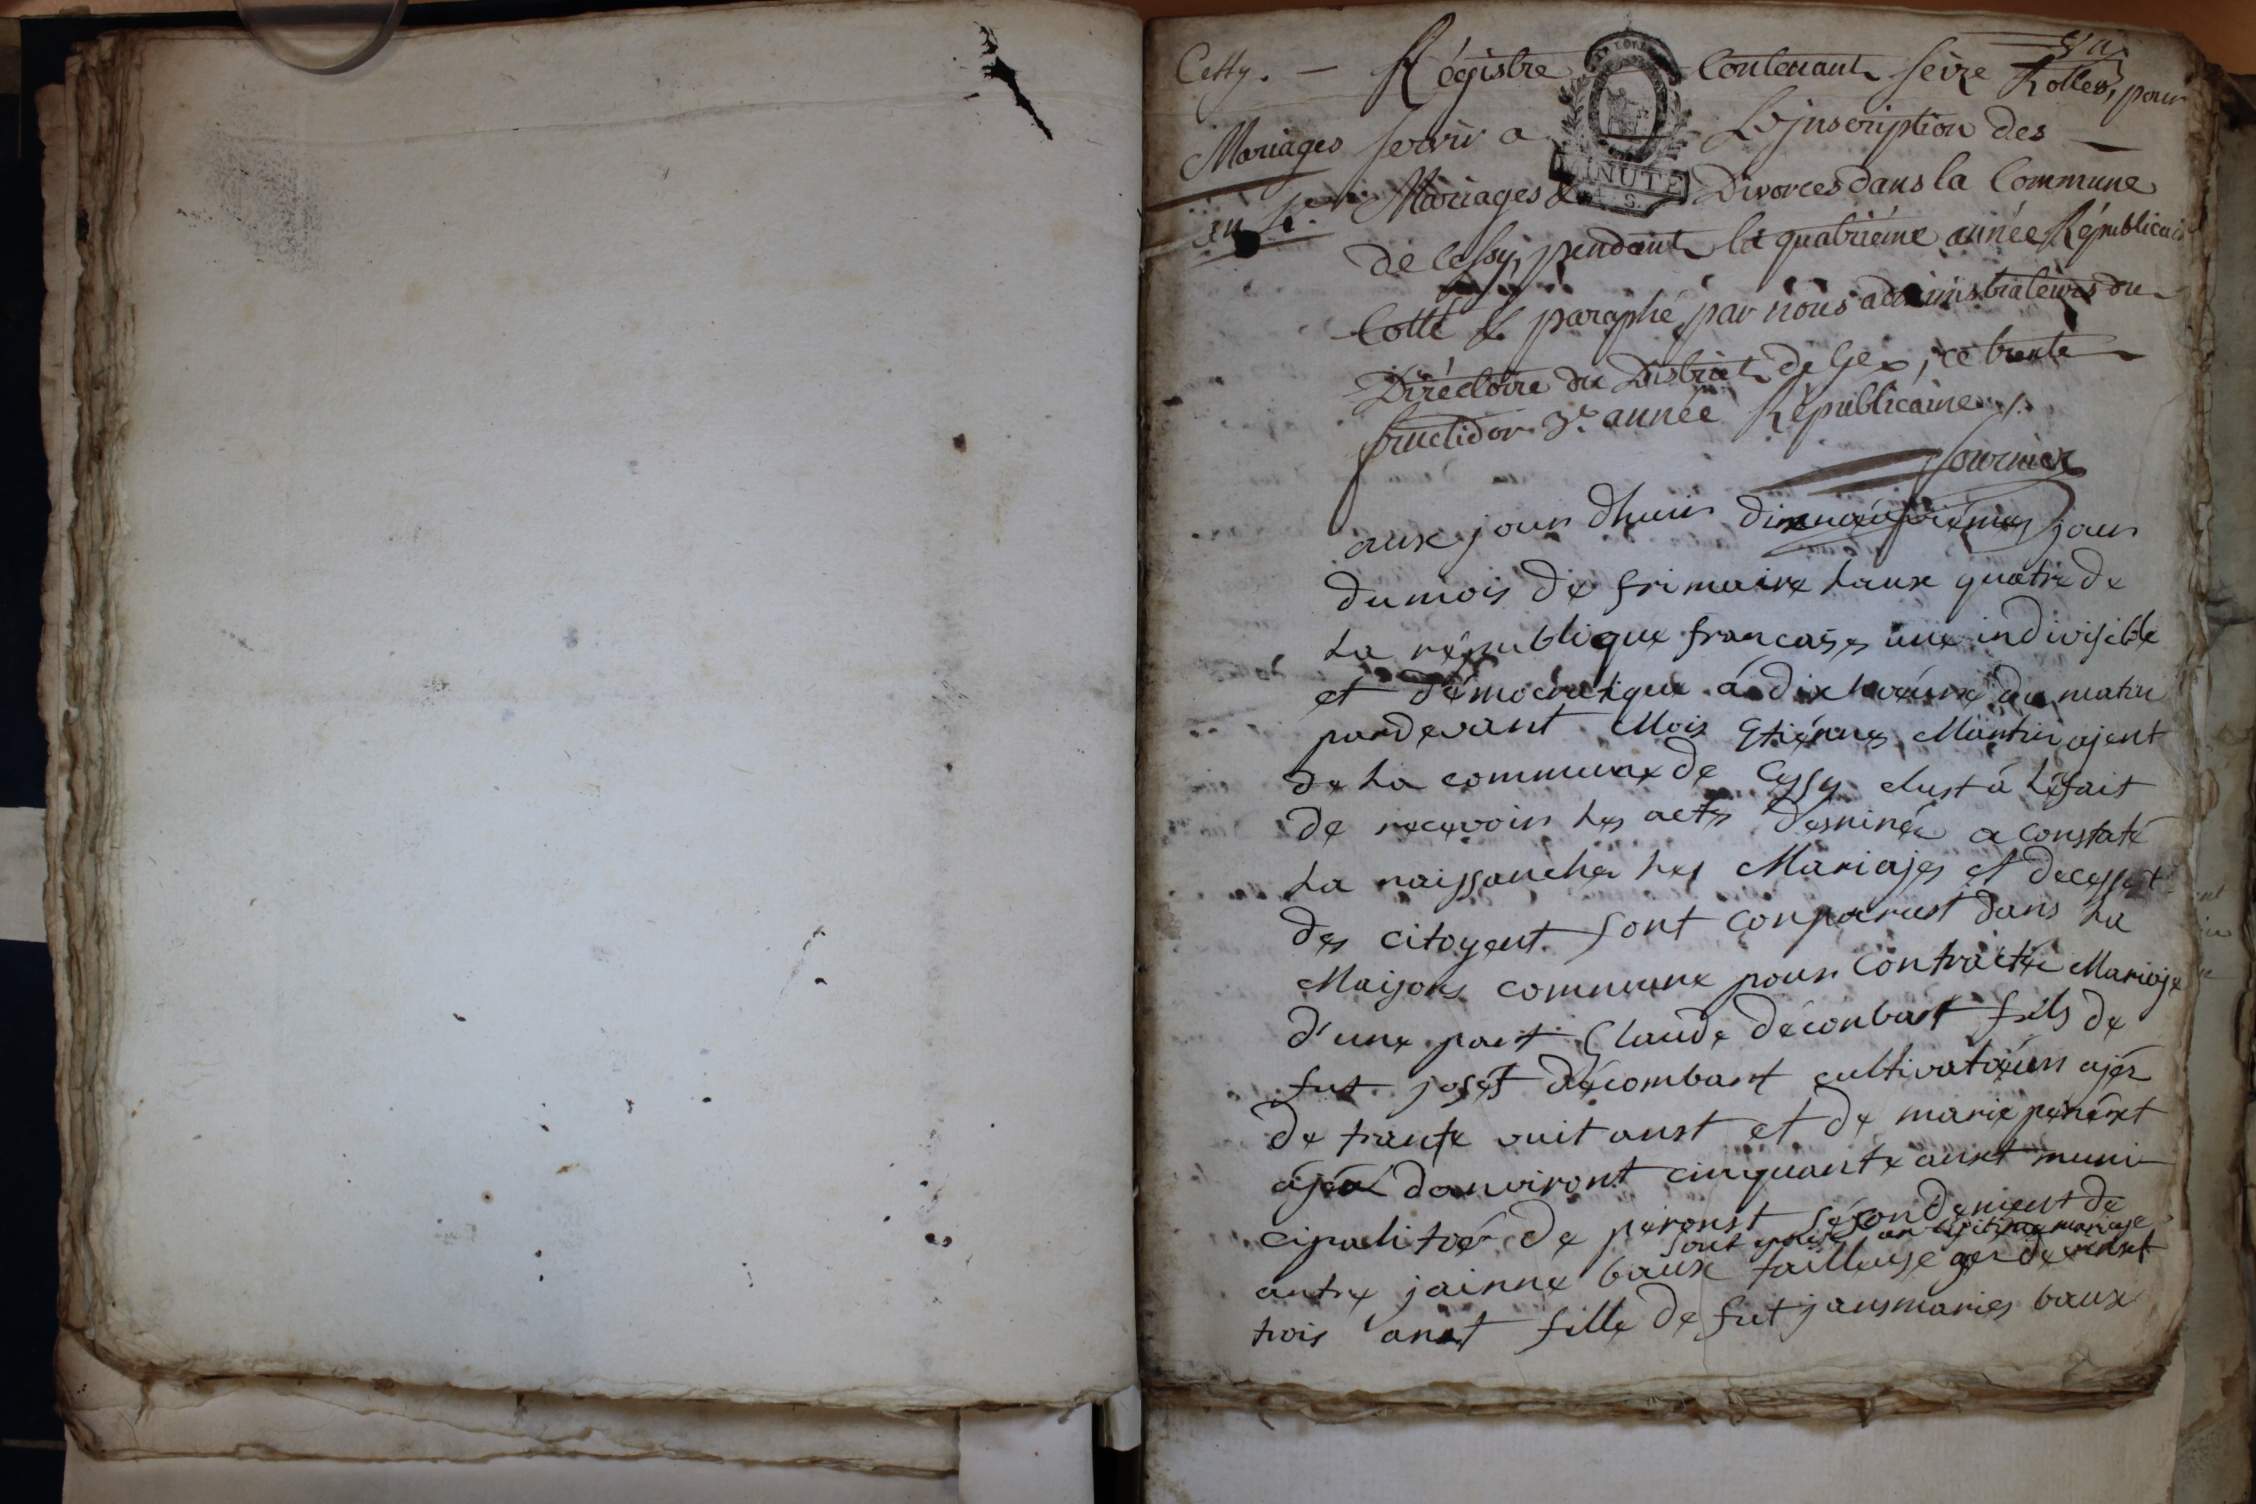 Cessy. — Régistre Contenant seize Rolles, pour
Mariages servir a L'inscription des
an 4e. Mariages & Divorces dans la Commune
MINUTE
de Cessy, pendant la quatriéme année Républicai
Cotté & paraphé par nous administrateurs du
Diréctoire du District de Gex, ce trente
fructidor 3e. année Républicaine /.
fournier
aux jour dhuis dixneuviémes jour
du mois de frimaire laux quatre de
La republique francaises une indivisible
et démocratique á dix heéure du matin
pardevant Mois Etiénnes Martin ajent
de La commune de Cessy elust á léfait
de recevoir les acts desninéz a constaté
La naissanche les Mariajes et decesst
des citoyent sont conparust dans La
Maijons commune pour contractée Mariaje
d'une part Claude déconbast fils de
fut josest décombast cultivatéur ajér
de trante ouit anst et de marie penéset
ajéz d'anviront cinquante anst muni
cipalitoé de péronst sécondement de
sont epoisé an lejitime mariaje
autre jainne baux tailleuse ajer de venst
trois anst fille de fut jansmaries baux